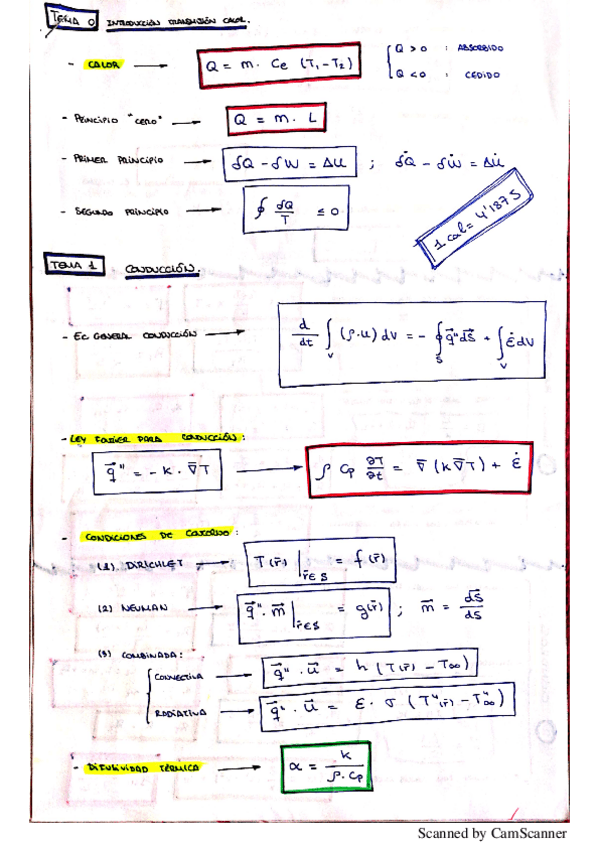 TEMA 0 INTRODUCCIÓN TRANSMISIÓN CALOR.
- CALOR → Q = m · Ce (T₁ - T₂) { Q > 0 : ABSORBIDO
Q < 0 : CEDIDO
- PRINCIPIO "CERO" → Q = m · L
- PRIMER PRINCIPIO → δQ - δW = Δu ; δQ̇ - δẆ = Δu̇
- SEGUNDO PRINCIPIO → ∮ δQ/T ≤ 0
1 cal = 4'187 J
TEMA 1 CONDUCCIÓN.
- EC GENERAL CONDUCCIÓN → d/dt ∫_V (ρ·u) dV = - ∮_S q⃗" dS⃗ + ∫_V ε̇ dV
- LEY FOURIER PARA CONDUCCIÓN :
q⃗" = -k · ∇̄T → ρ Cp ∂T/∂t = ∇̄ (k ∇̄T) + ε̇
- CONDICIONES DE CONTORNO :
(1) DIRICHLET → T(r̄) |_r̄∈S = f(r̄)
(2) NEUMAN → q⃗" · m⃗ |_r̄∈S = g(r̄) ; m⃗ = dS⃗/dS
(3) COMBINADA :
{ CONVECTIVA → q⃗" · u⃗ = h (T(r̄) - T∞)
RADIATIVA → q⃗" · u⃗ = ε · σ (T⁴(r̄) - T∞⁴)
- DIFUSIVIDAD TÉRMICA → α = k/ρ·Cp
Scanned by CamScanner